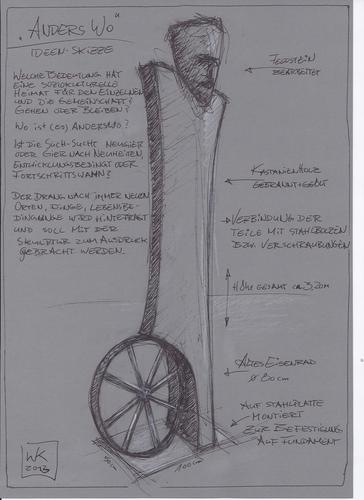 „Anders Wo"
IDEEN-SKIZZE
WELCHE BEDEUTUNG HAT
EINE SOZIOKULTURELLE
HEIMAT FÜR DEN EINZELNEN
UND DIE GEMEINSCHAFT?
GEHEN ODER BLEIBEN?
WO IST (ES) ANDERSWO?
IST DIE SUCH-SUCHT NEUGIER
ODER GIER NACH NEUHEITEN,
ENTWICKLUNGSBEDINGT ODER
FORTSCHRITTSWAHN?
DER DRANG NACH IMMER NEUEN
ORTEN, DINGE, LEBENSBE-
DINGUNGEN WIRD HINTERFRAGT
UND SOLL MIT DER
SKULPTUR ZUM AUSDRUCK
GEBRACHT WERDEN.
BEARBEITET
KASTANIENHOLZ
GEBRANNT+GEÖLT
VERBINDUNG DER
TEILE MIT STAHLBOLZEN
BZW. VERSCHRAUBUNGEN
HÖHE GESAMT ca. 3,20m
ALTES EISENRAD
ø 80cm
AUF STAHLPLATTE
MONTIERT
ZUR BEFESTIGUNG
AUF FUNDAMENT
100cm
WK
2013